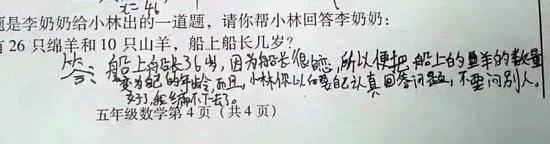 题是李奶奶给小林出的一道题，请你帮小林回答李奶奶：
有 26 只绵羊和 10 只山羊，船上船长几岁？
答：船上船长36岁，因为船长很恋，所以便把船上的羊的数量
变为自己的年龄，而且，小林你以后要自己认真回答问题，不要问别人。
编不下去了。
五年级数学第 4 页（共 4 页）